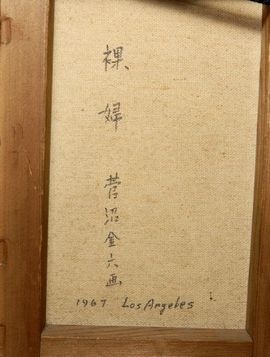 裸婦
菅沼金六画
1967 Los Angeles